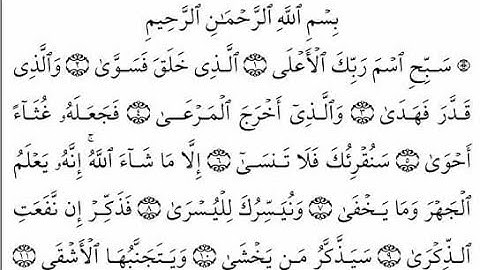 بِسۡمِ ٱللَّهِ ٱلرَّحۡمَٰنِ ٱلرَّحِيمِ
۞ سَبِّحِ ٱسۡمَ رَبِّكَ ٱلۡأَعۡلَى ١ ٱلَّذِي خَلَقَ فَسَوَّىٰ ٢ وَٱلَّذِي
قَدَّرَ فَهَدَىٰ ٣ وَٱلَّذِيٓ أَخۡرَجَ ٱلۡمَرۡعَىٰ ٤ فَجَعَلَهُۥ غُثَآءً
أَحۡوَىٰ ٥ سَنُقۡرِئُكَ فَلَا تَنسَىٰٓ ٦ إِلَّا مَا شَآءَ ٱللَّهُۚ إِنَّهُۥ يَعۡلَمُ
ٱلۡجَهۡرَ وَمَا يَخۡفَىٰ ٧ وَنُيَسِّرُكَ لِلۡيُسۡرَىٰ ٨ فَذَكِّرۡ إِن نَّفَعَتِ
ٱلذِّكۡرَىٰ ٩ سَيَذَّكَّرُ مَن يَخۡشَىٰ ١٠ وَيَتَجَنَّبُهَا ٱلۡأَشۡقَى ١١